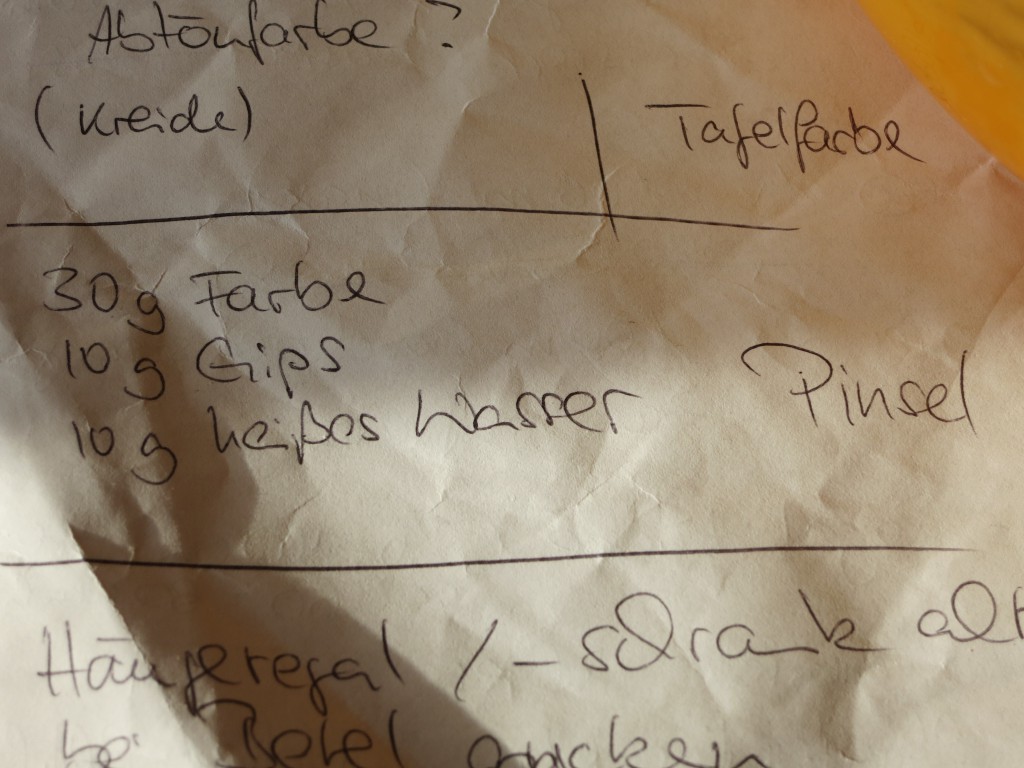 Abtönfarbe ?
(Kreide)
Tafelfarbe
30g Farbe
10g Gips
10g heißes Wasser
Pinsel
Hängeregal /-schrank alt
bei